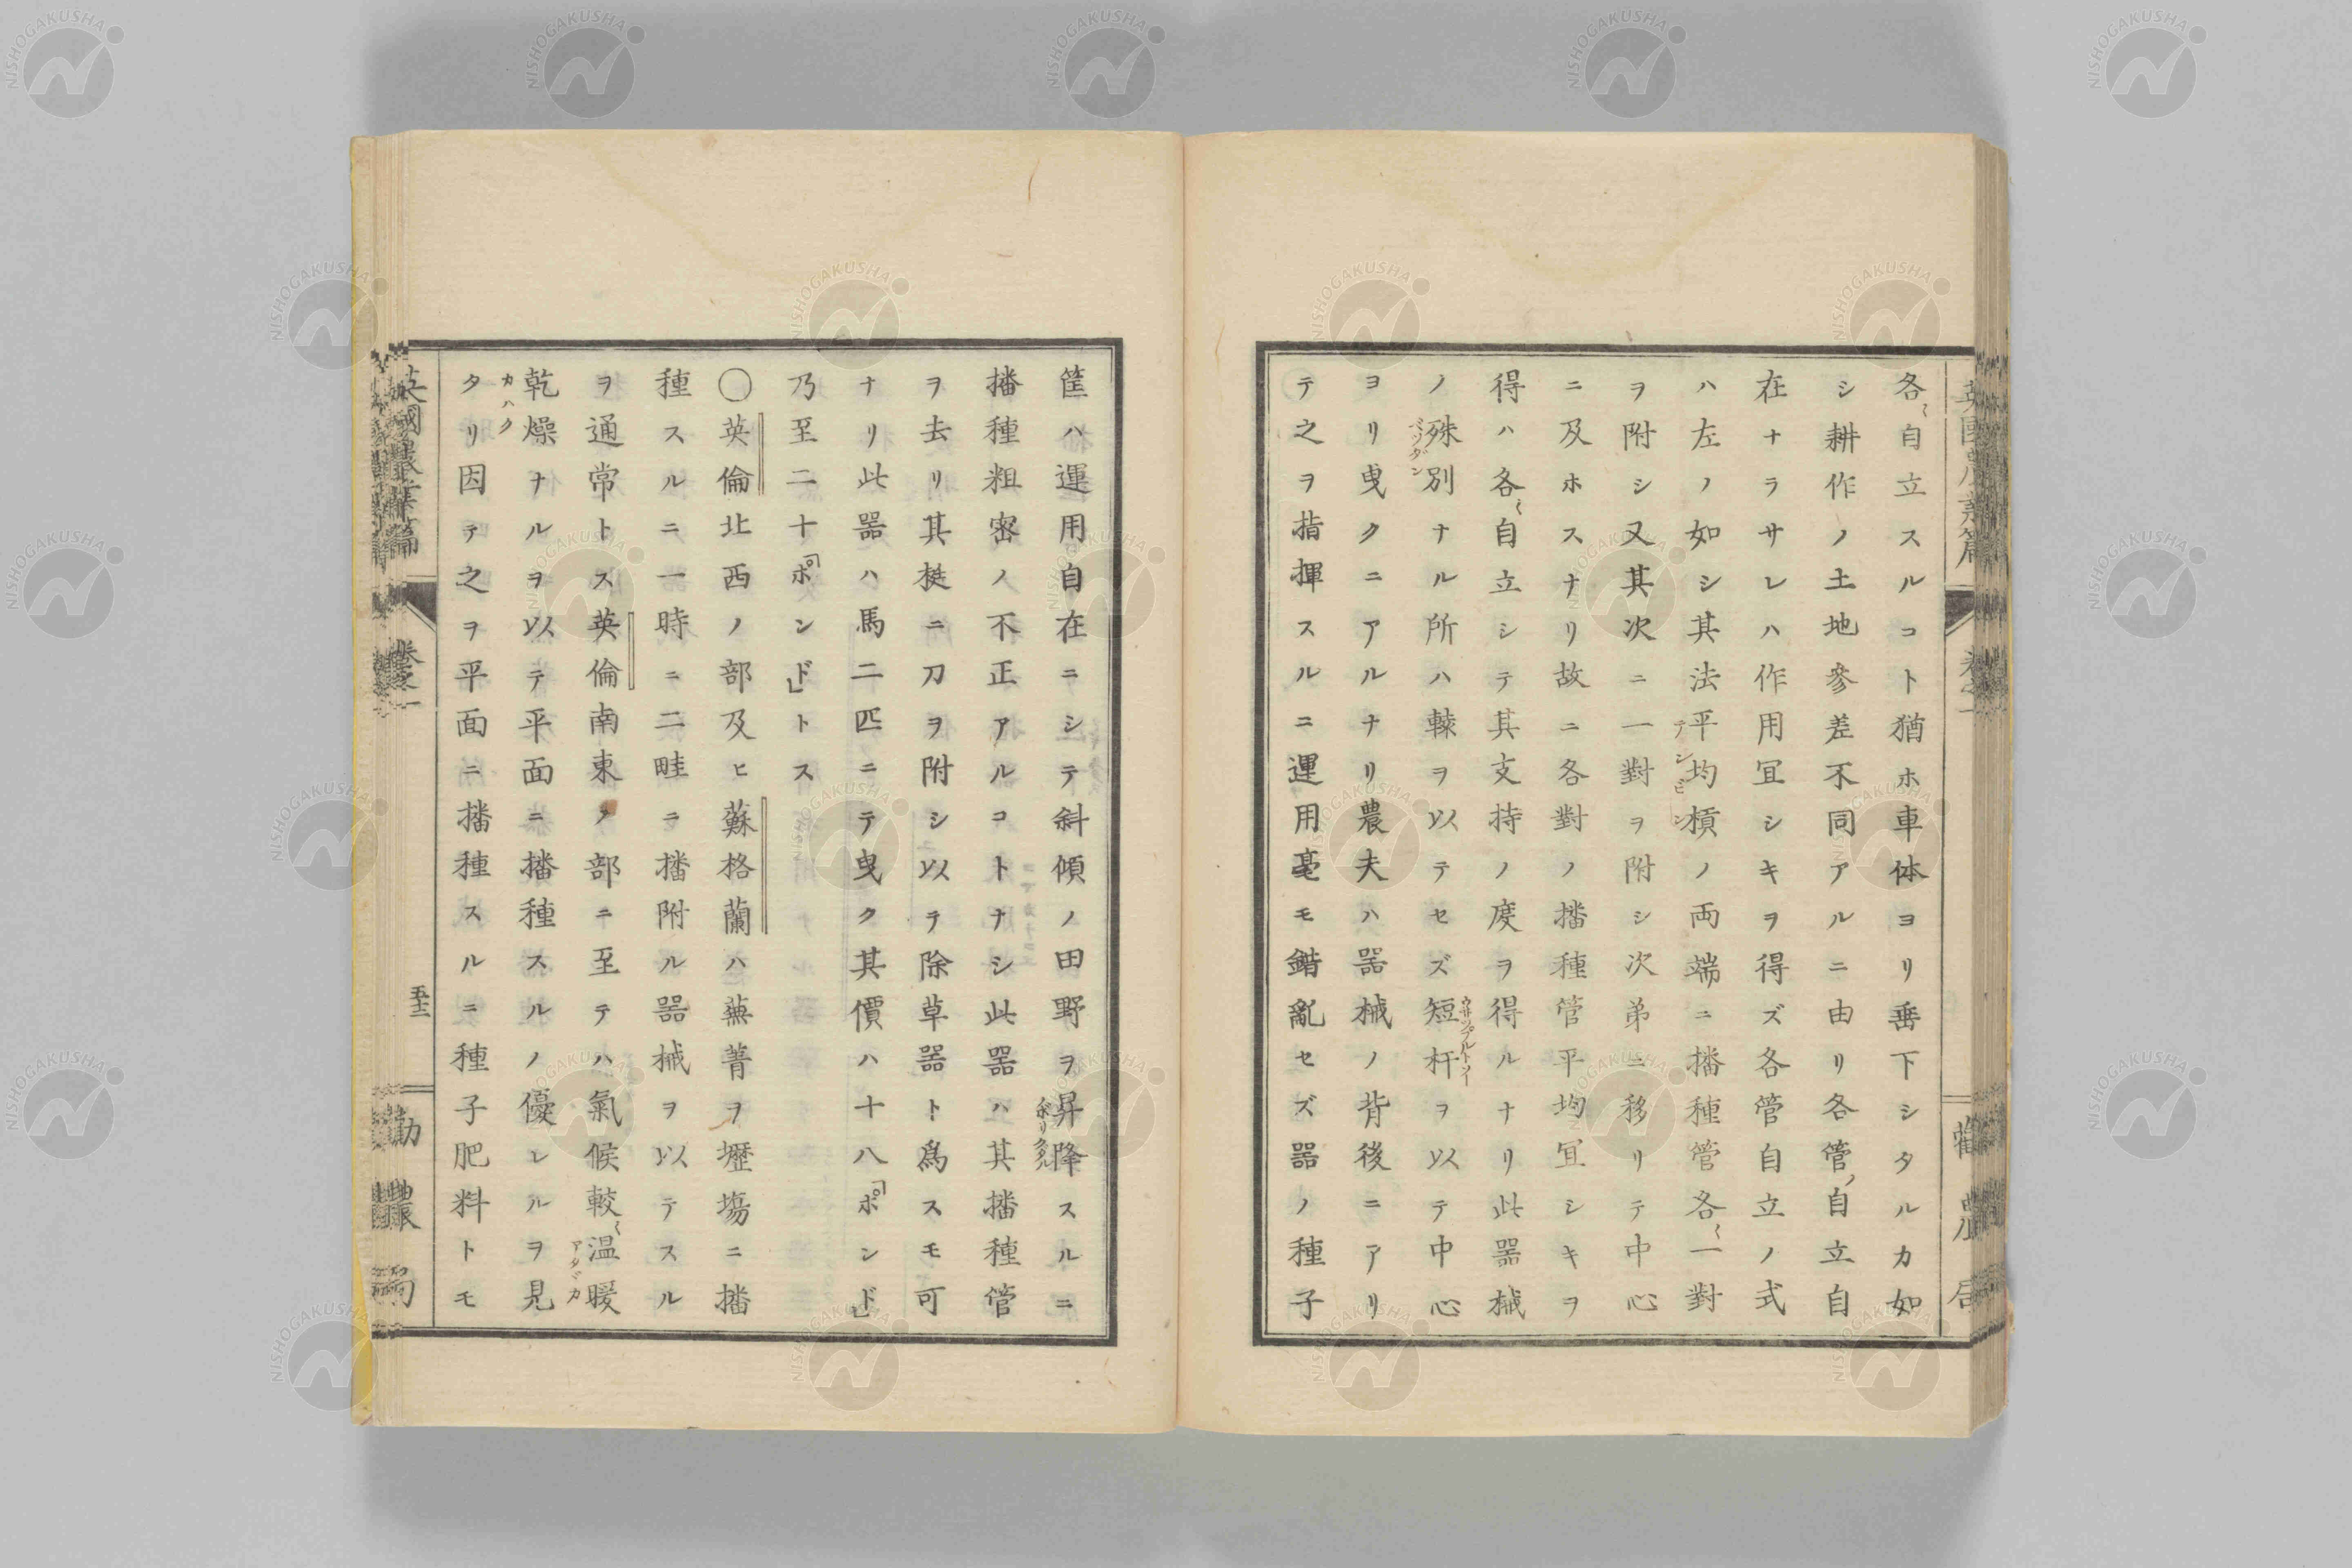 各〻自立スルコト猶ホ車体ヨリ垂下シタルカ如
シ耕作ノ土地參差不同アルニ由リ各管ノ自立自
在ナラサレハ作用冝シキヲ得ズ各管自立ノ式
ハ左ノ如シ其法平均槓ノ両端ニ播種管各〻一對
テンビン
ヲ附シ又其次ニ一對ヲ附シ次弟ニ移リテ中心
ニ及ホスナリ故ニ各對ノ播種管平均冝シキヲ
得ハ各〻自立シテ其支持ノ度ヲ得ルナリ此器械
ノ殊別ナル所ハ轅ヲ以テセズ短杆ヲ以テ中心
ベツダン
ヨリ曳クニアルナリ農夫ハ器械ノ背後ニアリ
テ之ヲ指揮スルニ運用毫モ錯亂セズ器ノ種子
筐ハ運用自在ニシテ斜傾ノ田野ヲ昇降スルニ
播種粗密ノ不正アルコトナシ此器ハ其播種管
ヲ去リ其梃ニ刀ヲ附シ以テ除草器ト爲スモ可
ナリ此器ハ馬二匹ニテ曳ク其價ハ十八「ポンド」
乃至二十「ポンド」トス
〇英倫北西ノ部及ヒ蘇格蘭ハ蕪菁ヲ壢塲ニ播
種スルニ一時ニ二畦ヲ播附ル器械ヲ以テスル
ヲ通常トス英倫南東ノ部ニ至テハ氣候較〻温暖
アタヽカ
乾燥ナルヲ以テ平面ニ播種スルノ優レルヲ見
カハク
タリ因テ之ヲ平面ニ播種スルニ種子肥料トモ
英國農業篇
卷之一
五十二
勸農局